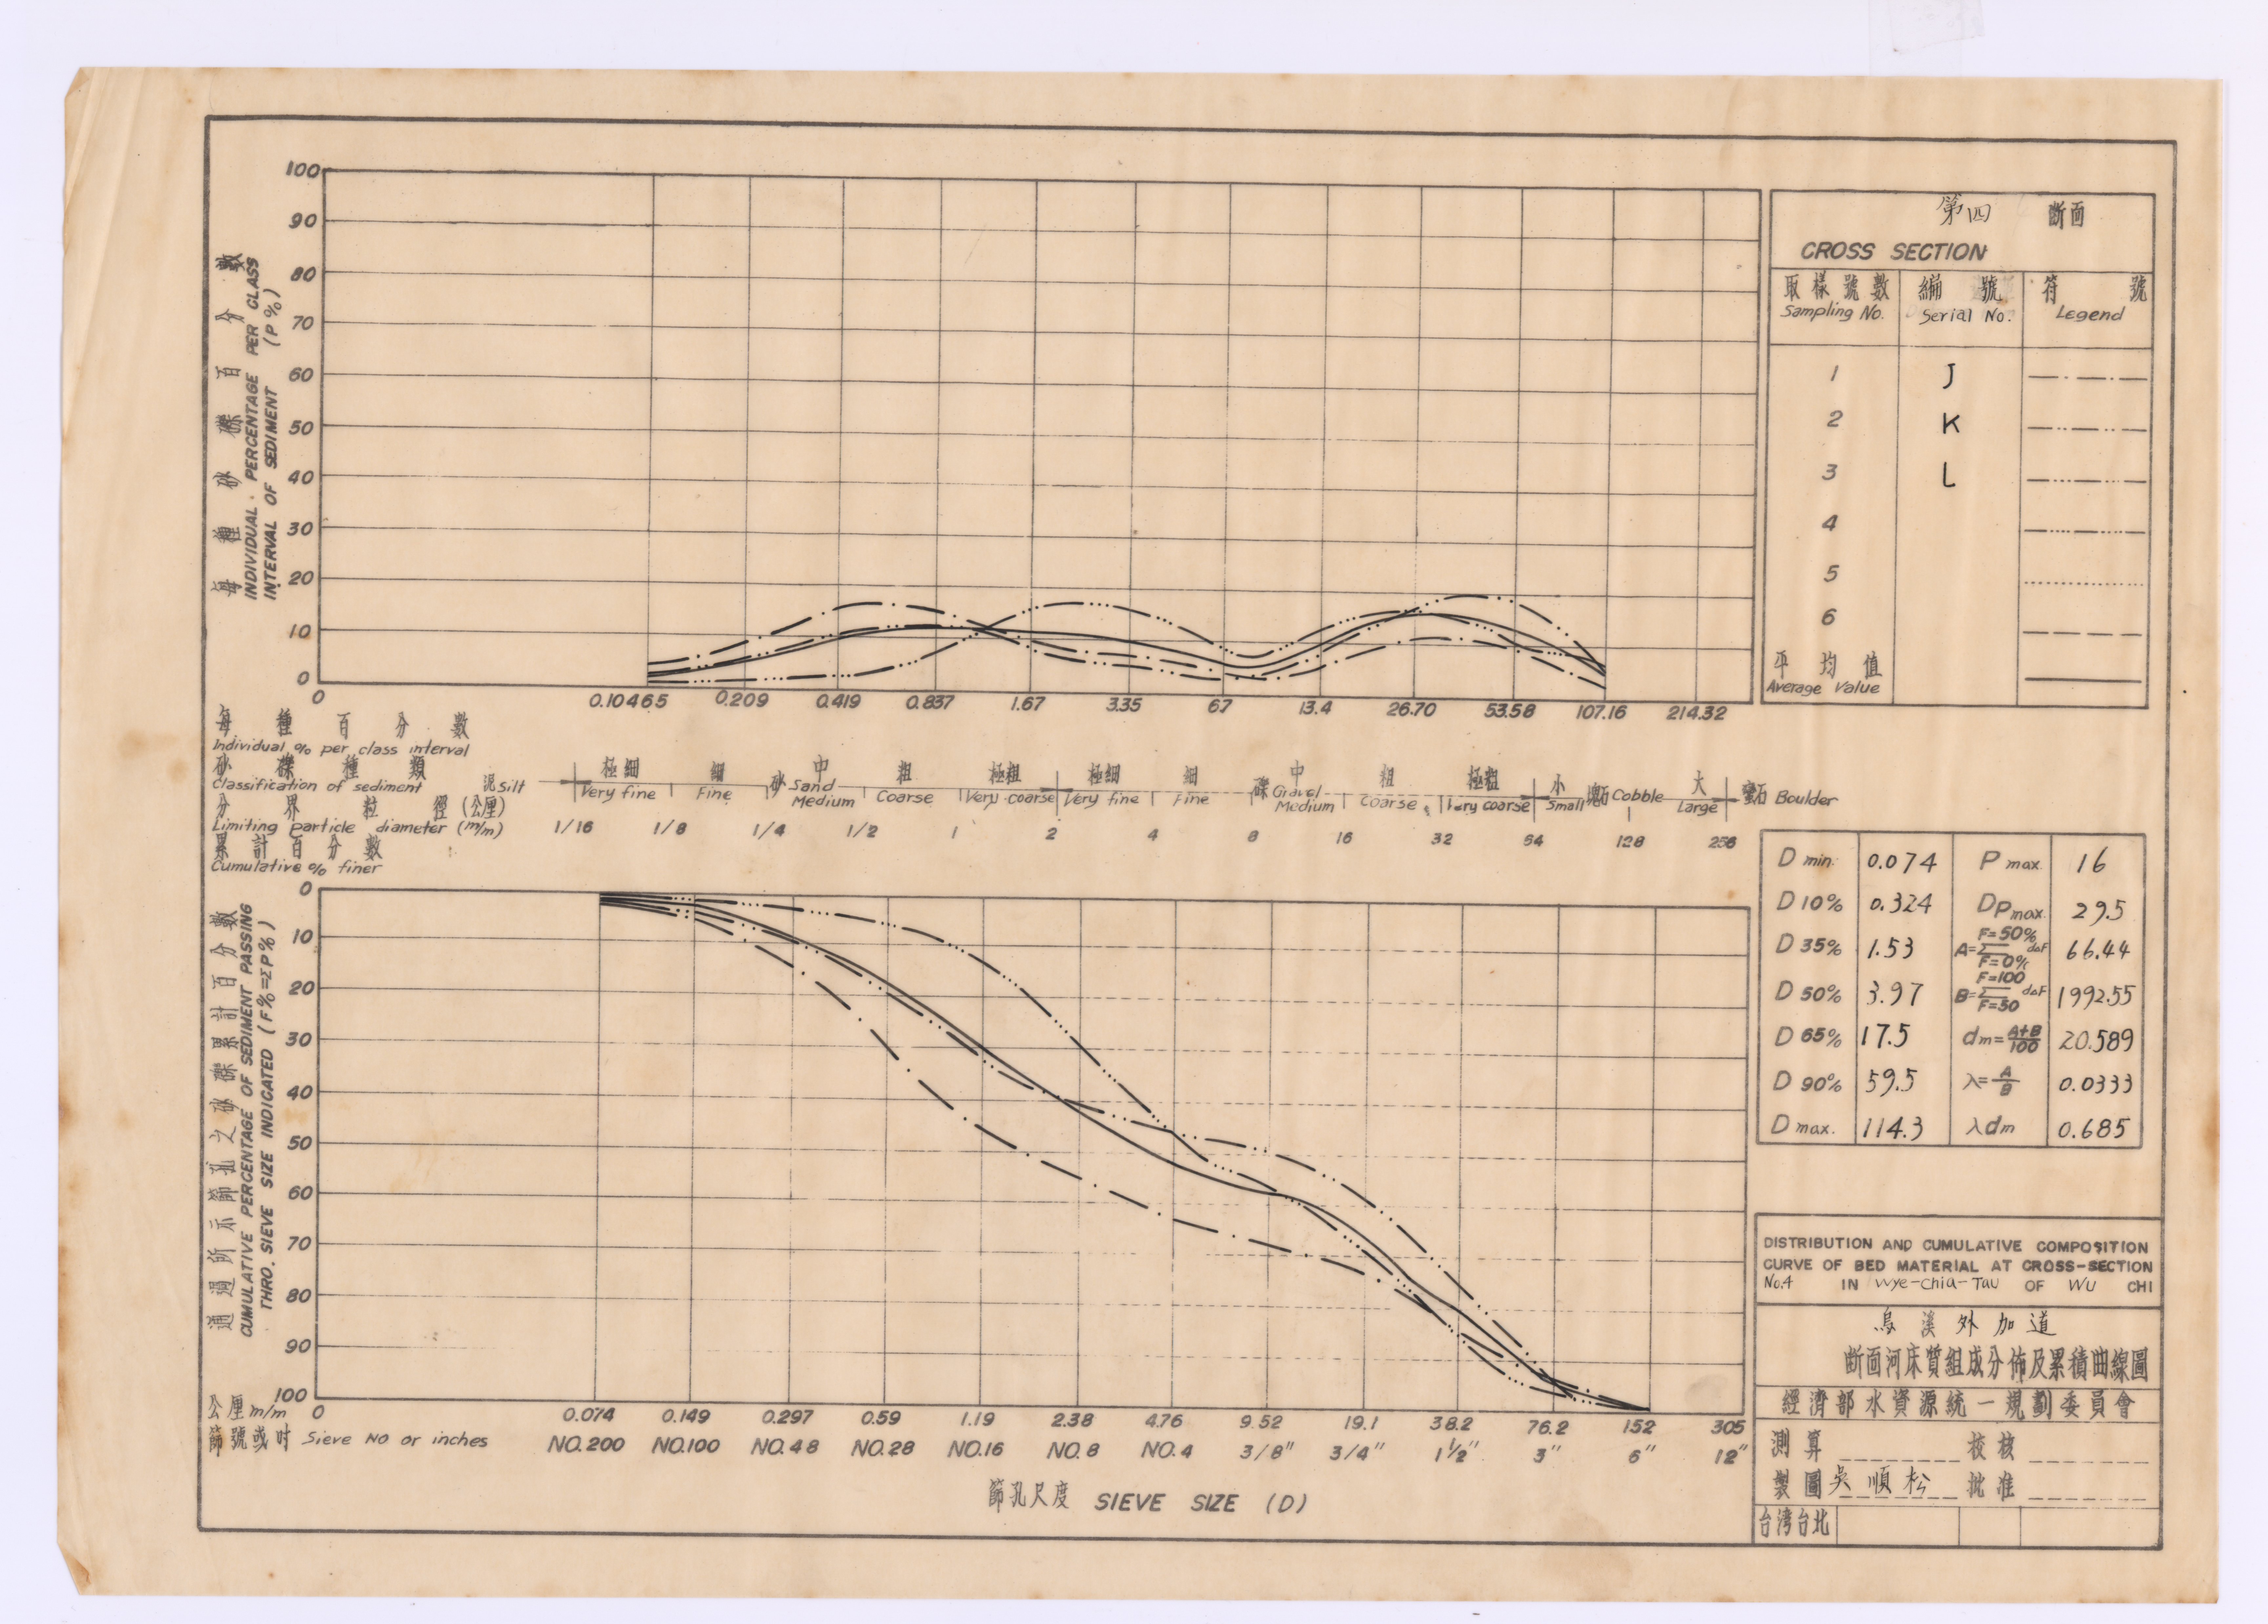 100
90
80
70
60
50
40
30
20
10
0
每種砂礫百分數
INDIVIDUAL PERCENTAGE PER CLASS
INTERVAL OF SEDIMENT (P%)
0 0.10465 0.209 0.419 0.837 1.67 3.35 67 13.4 26.70 53.58 107.16 214.32
第四 斷面
CROSS SECTION
取樣號數 編號 符號
Sampling No. Serial No. Legend
1 J
2 K
3 L
4
5
6
平均值
Average Value
每種百分數
Individual % per class interval
砂礫種類
Classification of sediment
泥 Silt
極細 細 中 粗 極粗 極細 細 中 粗 極粗 小 大
砂 Sand 礫 Gravel 塊石 Cobble 蠻石 Boulder
Very fine Fine Medium Coarse Very coarse Very fine Fine Medium Coarse Very coarse Small Large
分界粒徑(公厘)
Limiting particle diameter (m/m)
1/16 1/8 1/4 1/2 1 2 4 8 16 32 64 128 256
累計百分數
Cumulative % finer
0
10
20
30
40
50
60
70
80
90
100
通過所示篩孔之砂礫累計百分數
CUMULATIVE PERCENTAGE OF SEDIMENT PASSING
THRO. SIEVE SIZE INDICATED (F%=ΣP%)
公厘 m/m 0 0.074 0.149 0.297 0.59 1.19 2.38 4.76 9.52 19.1 38.2 76.2 152 305
篩號或吋 Sieve No or inches NO.200 NO.100 NO.48 NO.28 NO.16 NO.8 NO.4 3/8" 3/4" 1½" 3" 6" 12"
篩孔尺度 SIEVE SIZE (D)
D min. 0.074 P max. 16
D 10% 0.324 DPmax. 29.5
D 35% 1.53 A=Σ F=50% F=0% d△F 66.44
D 50% 3.97 B=Σ F=100 F=50 d△F 1992.55
D 65% 17.5 dm=A+B/100 20.589
D 90% 59.5 λ=A/B 0.0333
D max. 114.3 λdm 0.685
DISTRIBUTION AND CUMULATIVE COMPOSITION
CURVE OF BED MATERIAL AT CROSS-SECTION
No.4 IN Wye-Chia-Tau OF WU CHI
烏溪外加道
斷面河床質組成分佈及累積曲線圖
經濟部水資源統一規劃委員會
測算 校核
製圖 吳順松 批准
台湾台北